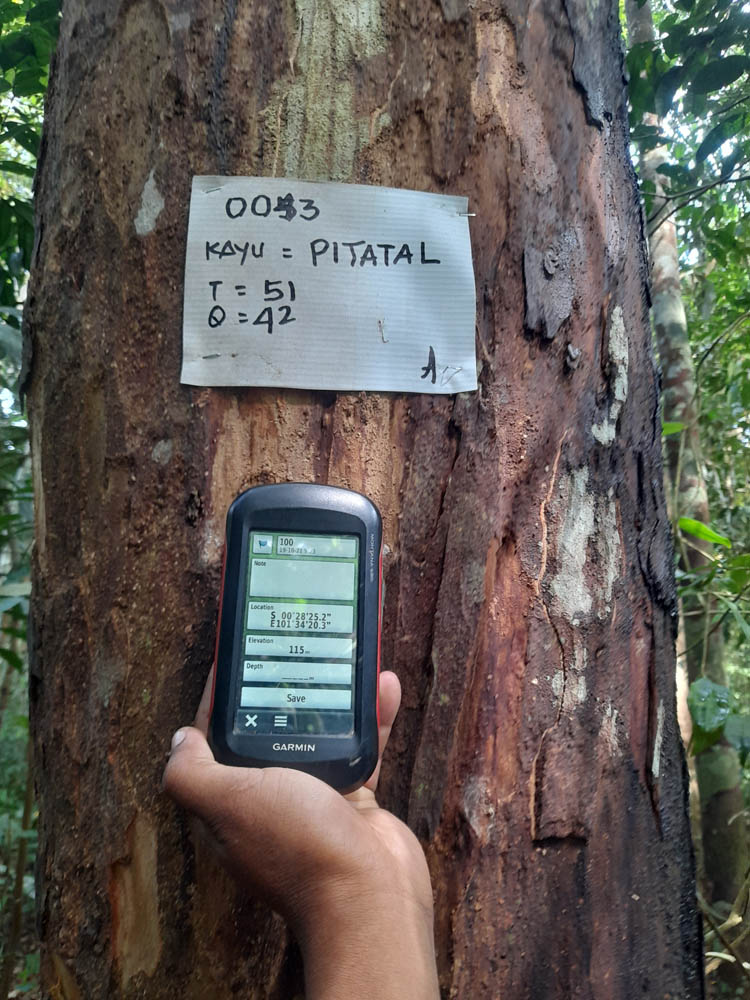 0053
KAYU = PITATAL
T = 51
Q = 42
A
100
Note
Location
S 00°28'25.2"
E101°34'20.3"
Elevation
115m
Depth
_____m
Save
GARMIN